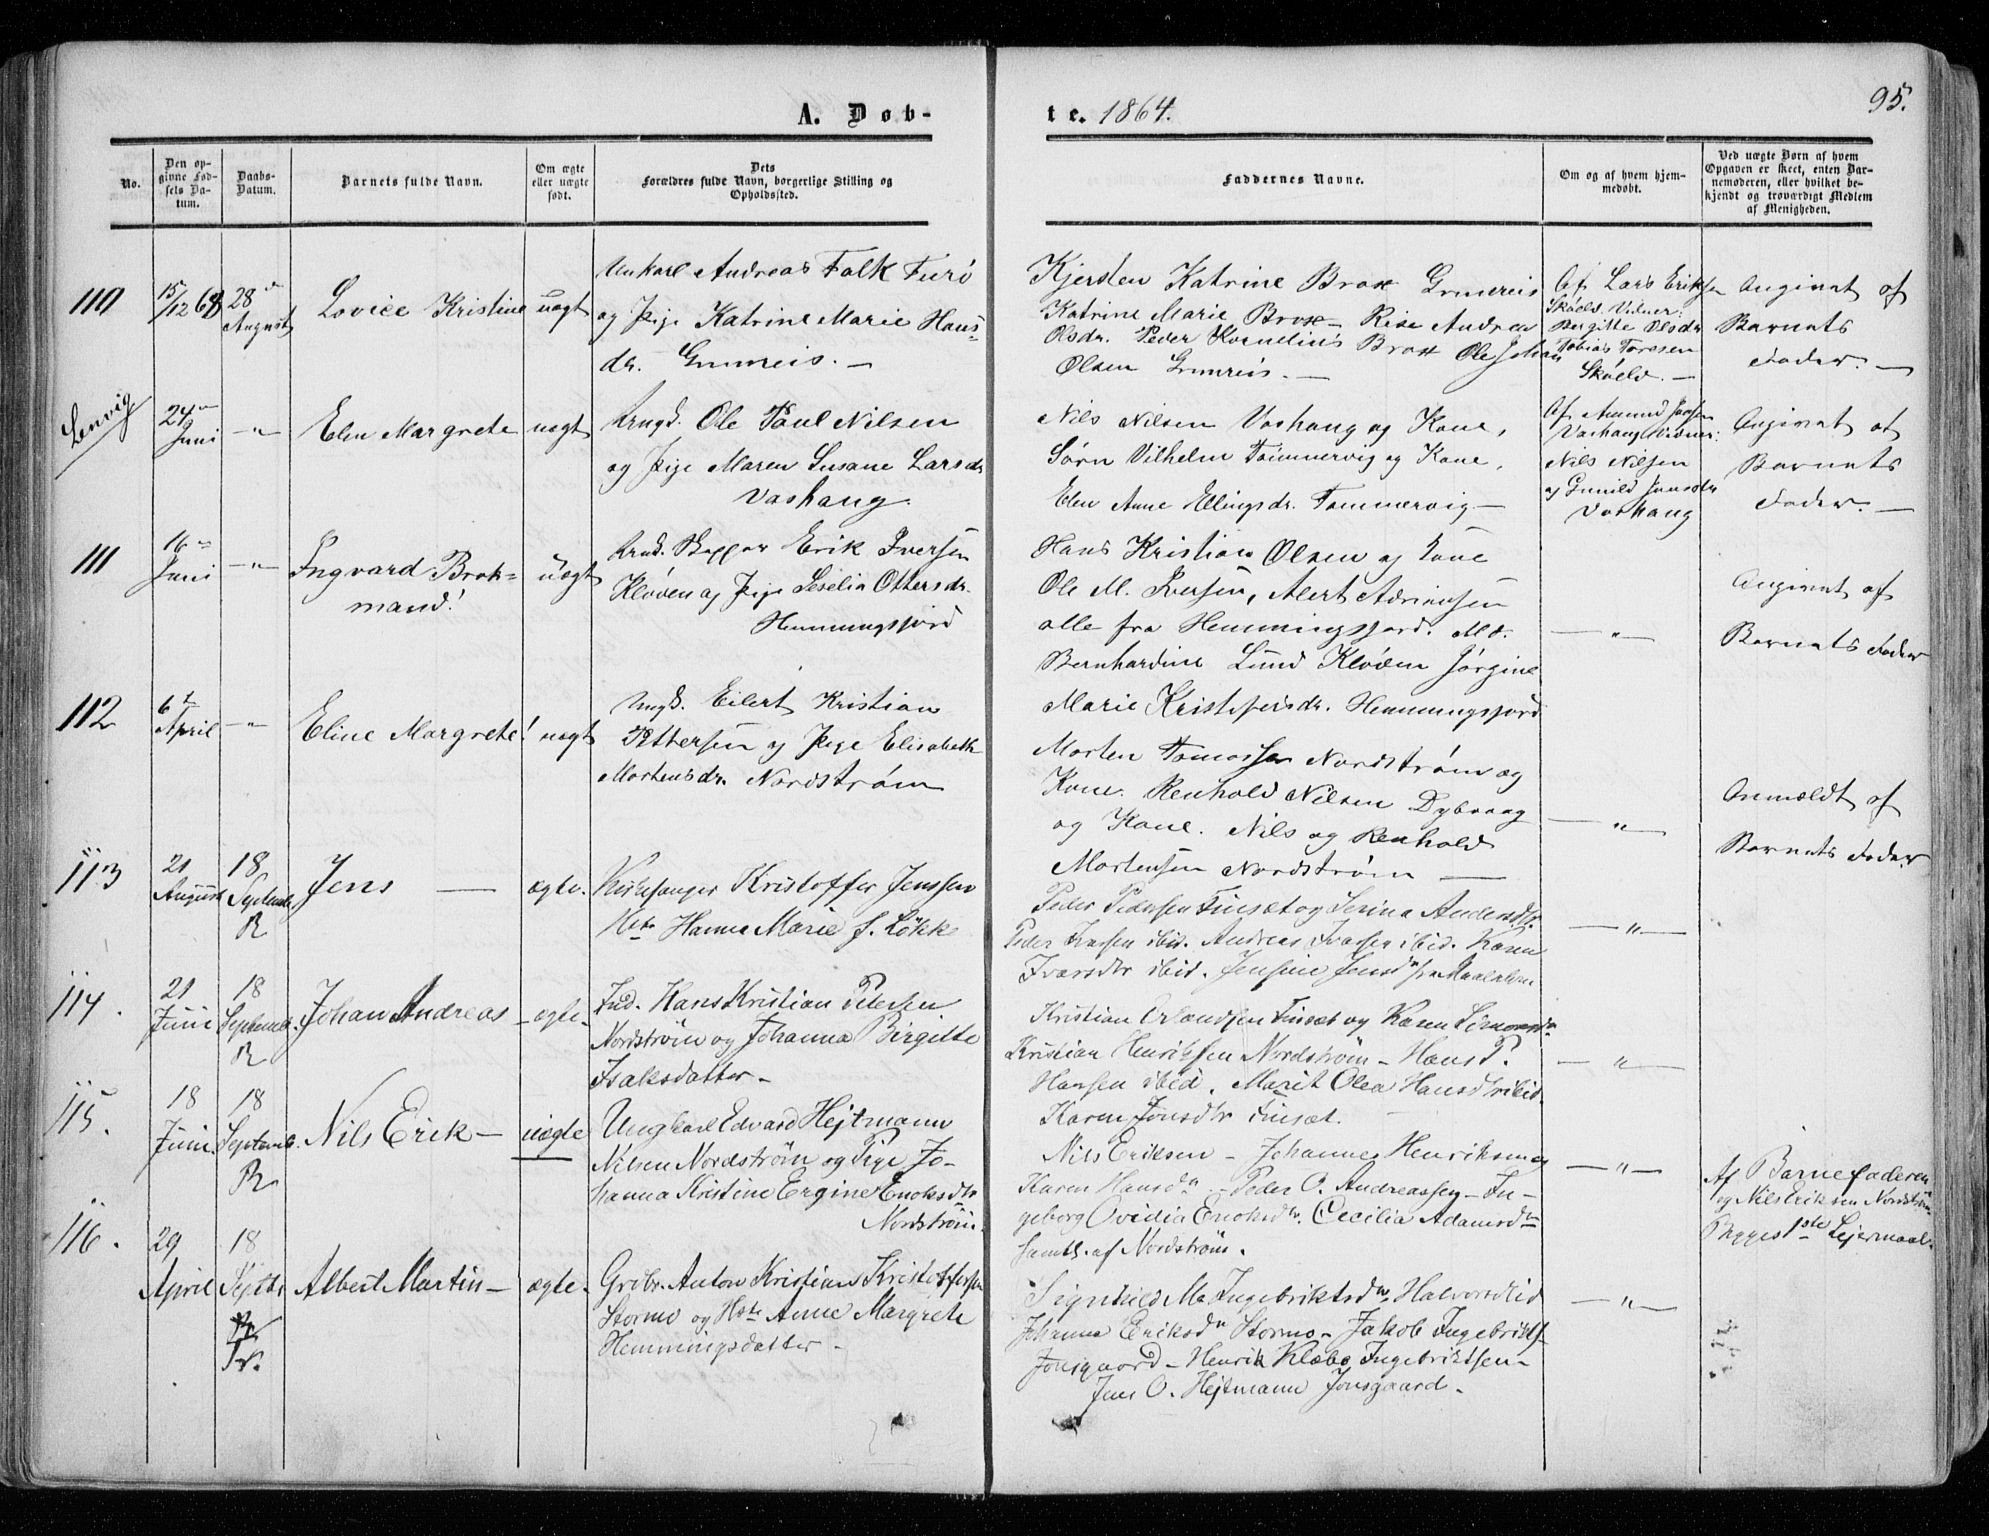 A. Døb-
te. 1864.
95.
No.
Den op-
givne Fød-
sels Da-
tum.
Daabs-
Datum.
Barnets fulde Navn.
Om ægte
eller uægte
født.
Dets
Forældres fulde Navn, borgerlige Stilling og
Opholdssted.
Faddernes Navne.
Om og af hvem hjem-
medøbt.
Ved uægte Børn af hvem
Opgaven er skeet, enten Bar-
nemoderen, eller hvilket be-
kjendt og troværdigt Medlem
af Menigheden.
110
15/12 63
28
August
Lovice Kristine
uægt
Unkarl Andreas Falk Furö
og Pige Katrine Marie Hans=
dr. Grunreis. —
Kjersten Katrine Brox Grunreis
Katrine Marie Brox — Risa Andrea
Olsdr. Peder Kornelius Brox Ole Johan
Olsen Grunreis. —
Af Lars Eriksen
Sköeld. Vidner:
Birgitte Olsdr
Tobias Toresen
Sköeld. —
Angivet af
Barnets
Fader. —
Lenvig
24
Juni
— " —
Elen Margrete
uægt
Ungk. Ole Paul Nilsen
og Pige Maren Susane Larsdr
Vashaug.
Nils Nilsen Vashaug og Kone,
Sörn Vilhelm Tömmervig og Kone,
Elen Anne Ellingsdr. Tömmervig —
Af Amund
Vashaug Vidner:
Nils Nilsen
og Gunild Jensdr
Vashaug
Angivet af
Barnets
Fader. —
111
16
Juni
— " —
Ingvard Brok=
mand!
uægt
Erik Iversen
Klöven og Pige Seselia Ottersdr.
Hemmingsfjord
Hans Kristian Olsen og Kone
Ole M. Iversen, Alert Adriansen
alle fra Hemmingsfjord.
Bernhardine Lund Klöven Jörgine
Marie Kristofersdr. Hemmingsfjord
— " —
Angivet af
Barnets Fader
112
6
April
— " —
Eline Margrete!
uægt
Ungk. Eilert Kristian
Pettersen og Pige Elisabeth
Mortensdr. Nordström
Morten Tomassen Nordström og
Kone. Renhold Nilsen Dybvaag
og Kone. Nils og Renhold
Mortensen Nordström —
— " —
Anmeldt af
Barnets Fader
113
21
August
18
Septembr
R
Jens —
ægte.
Kirkesanger Kristoffer Jenssen
Hstr Hanna Marie f. Lökke
Peder Pedersen Finset og Serina Andersdtr.
Peder Ivarsen ibid. Andreas Ivarsen ibid. Karen
Ivarsdtr ibid. Jensine Jensdtr
— " —
114.
21
Juni
18
Septemb.
R
Johan Andreas
ægte.
Ind. Hans Kristian Petersen
Nordström og Johanna Birgitte
Isaksdatter —
Kristian Erlandsen Finset og Karen Simonsdtr
Kristian Henriksen Nordström — Hans P.
Hansen ibid. Marit Olea Hansdtr ibid.
Karen Jonsdtr Finset.
— " —
115.
18
Juni
18
Septemb.
R
Nils Erik —
uægte
Ungkarl Edvard Hejtmann
Nilsen Nordström og Pige Jo-
hanna Kristine Ergine Enoksdtr
Nordström.
Nils Eriksen — Johannes Henriksen og
Karen Hansdtr — Peder O. Andreassen — In-
geborg Ovidia Enoksdtr. Cecilia Adamsdtr
samtl. af Nordström.
— " —
Af Barnefaderen
og Nils Eriksen Nordström
Begges 1ste Lejermaal.
116.
29
April
18
Septbr
Tr.
Albert Martin —
ægte.
Grdbr. Anton Kristian Kristoffersen
Stormo og Hstr Anne Margrete
Hemmingsdatter —
Signhild M. Ingebriktsdtr Halvorsdlid
Johanna Eriksdtr Stormo — Jakob Ingebriktsen
Jonsgaard — Henrik Klæbo Ingebriktsen —
Jens O. Hejtmann Jonsgaard —
— " —